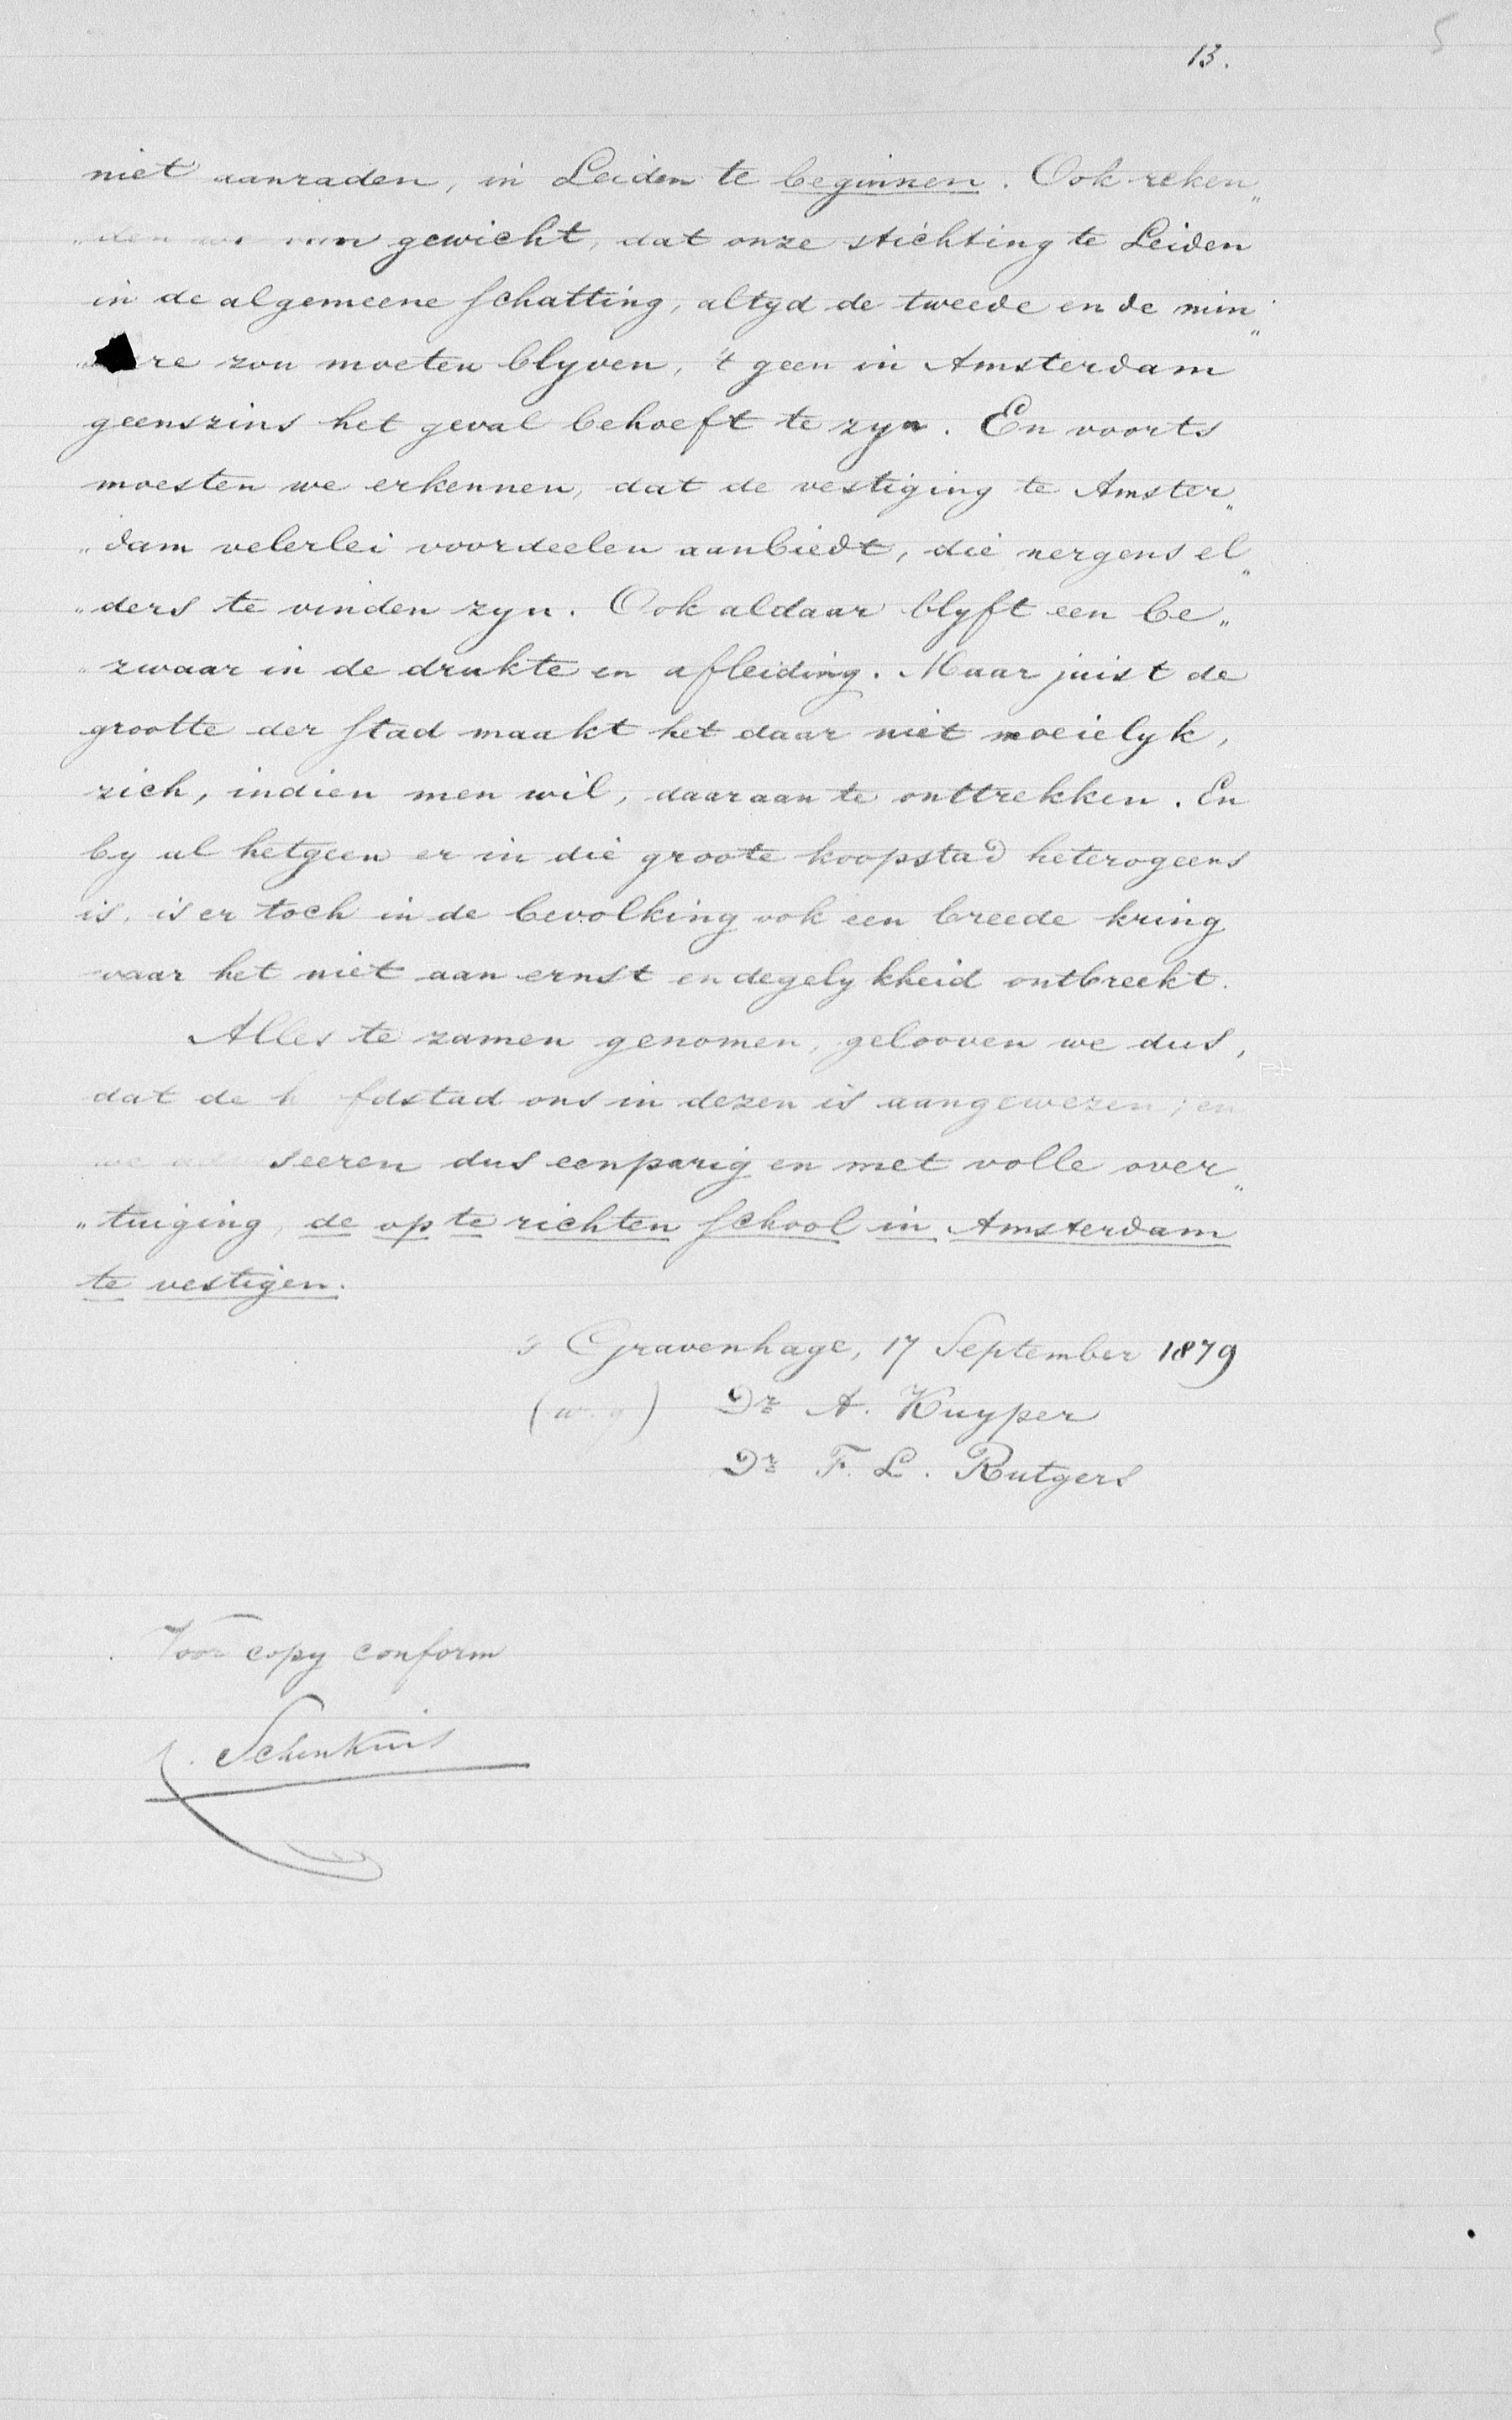 13.
5
niet aanraden, in Leiden te beginnen. Ook reken„
„den we van gewicht, dat onze stichting te Leiden
in de algemeene schatting, altyd de tweede en de min„
re zou moeten blyven, 't geen in Amsterdam
geenszins het geval behoeft te zyn. En voorts
moesten we erkennen, dat de vestiging te Amster„
„dam velerlei voordeelen aanbiedt, die nergens el„
„ders te vinden zyn. Ook aldaar blyft een be„
„zwaar in de drukte en afleiding. Maar juist de
grootte der stad maakt het daar niet moeielyk,
zich, indien men wil, daaraan te onttrekken. En
by al hetgeen er in die groote koopstad heterogeens
is, is er toch in de bevolking ook een breede kring
waar het niet aan ernst en degelykheid ontbreekt.
Alles te zamen genomen, gelooven we dus,
dat de h fdstad ons in dezen is aangewezen; en
we seeren dus eenparig en met volle over„
„tuiging, de op te richten school in Amsterdam
te vestigen.
's Gravenhage, 17 September 1879
(w.g) Dr A. Kuyper
Dr F. L. Rutgers
Voor copy conform
Schenkuis